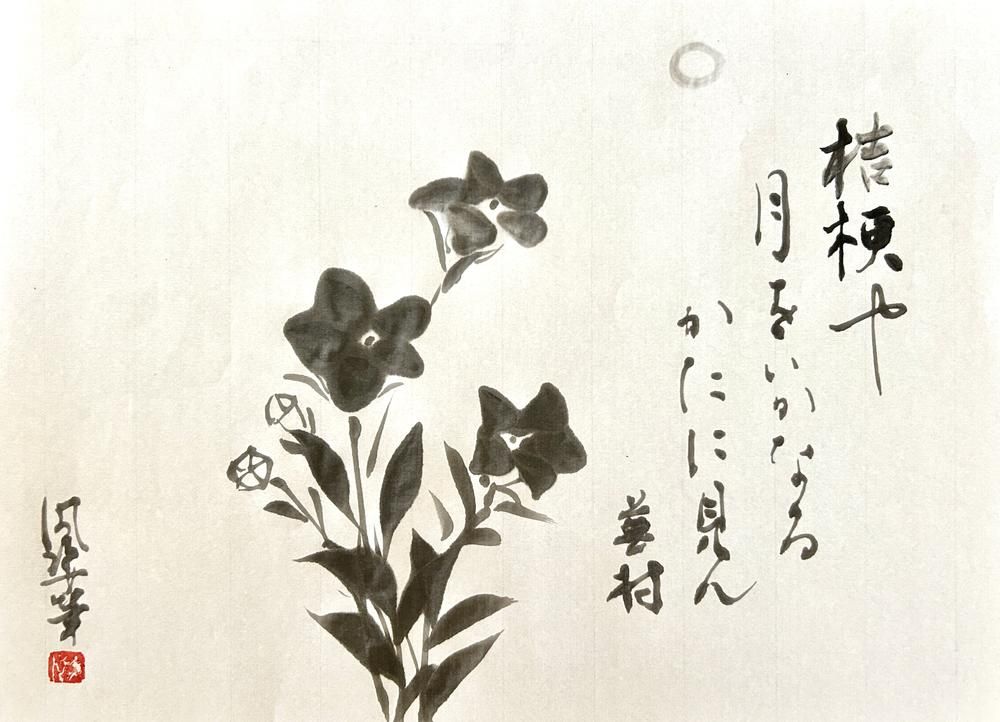 桔梗や
月をいかなる
かたに見ん
蕪村